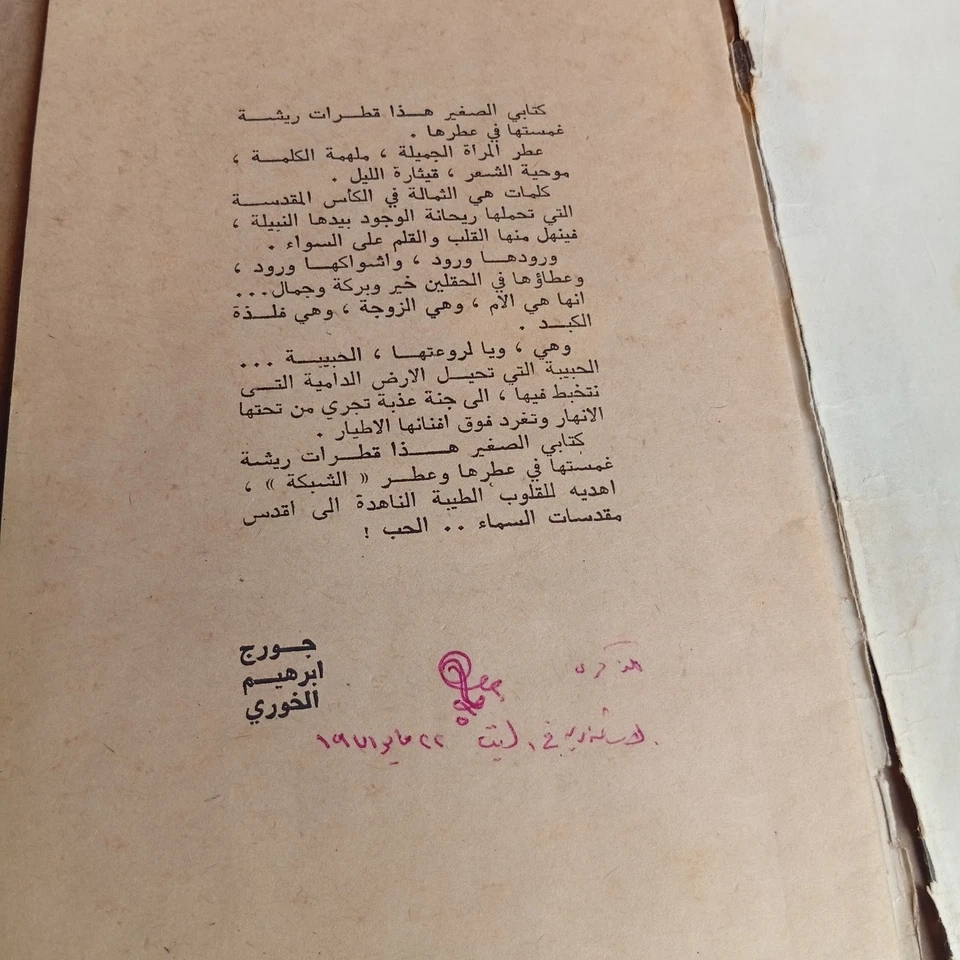 كتابي الصغير هـــذا قطــرات ريشــة
غمستها في عطرها .
عطر المرأة الجميلة ، ملهمة الكلمــة ،
موحية الشعر ، قيثارة الليل .
كلمات هي الثمالة في الكأس المقدســة
التي تحملها ريحانة الوجود بيدها النبيلة ،
فينهل منها القلب والقلم على السواء .
ورودهــا ورود ، واشواكهــا ورود ،
وعطاؤها في الحقلين خير وبركة وجمال...
انها هي الام ، وهي الزوجة ، وهي فلــذة
الكبــد .
وهي ، ويا لروعتهــا ، الحبيبــة ...
الحبيبة التي تحيــل الارض الدامية التــى
نتخبط فيها ، الى جنة عذبة تجري من تحتها
الانهار وتغرد فوق افنانها الاطيار .
كتابي الصغير هـــذا قطــرات ريشة
غمستها في عطرها وعطــر « الشبكة » ،
اهديه للقلوب الطيبة الناهدة الى اقدس
مقدسات السماء .. الحب !
جــورج
ابرهيــم
الخوري
٢٢ مايو ١٩٧١